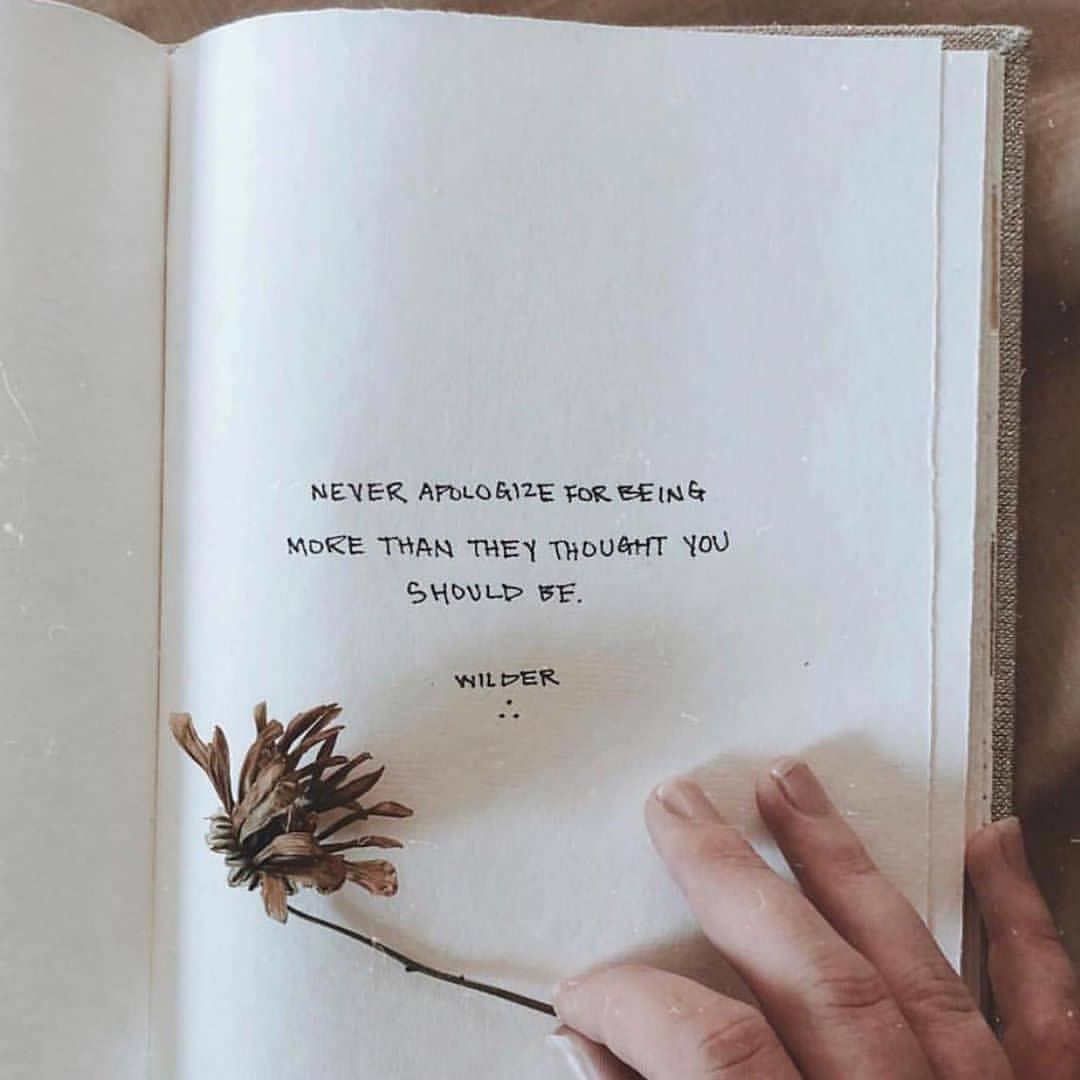 NEVER APOLOGIZE FOR BEING
MORE THAN THEY THOUGHT YOU
SHOULD BE.
WILDER